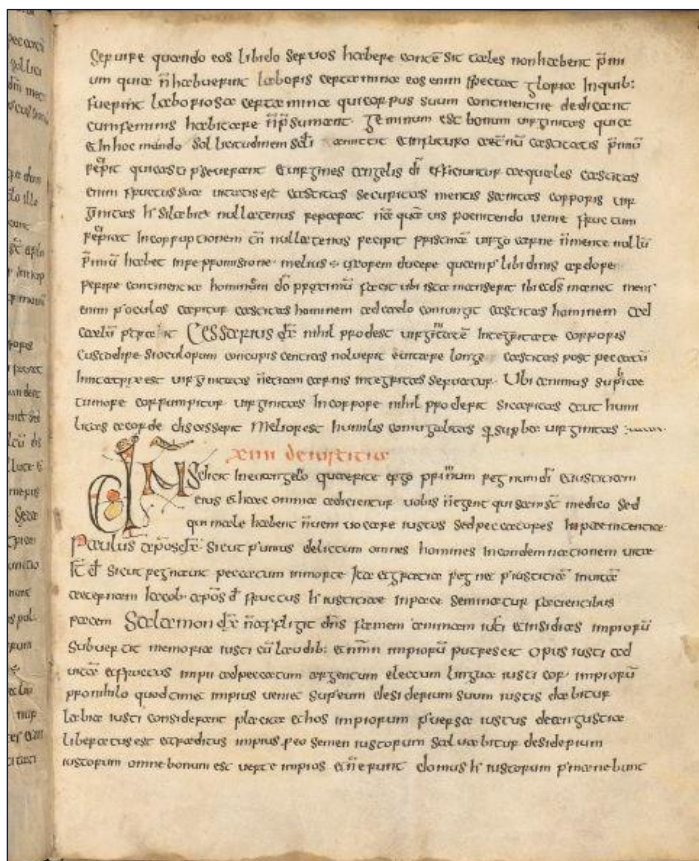 Seruire quando eos libido seruos habere concessit tales non habent p̄mi
um quia n̄ habuerint laboris certamina eos enim spectat gloria In quib;
fuerint laboriosa certamina qui corpus suum continentie dedicant
cum feminis habitare n̄ p̄sumant. Geminum est bonum uirginitas quia
& in hoc mundo sollicitudinem sc̄li amittit & in futuro aet̄nū castitatis p̄miū
recipit qui casti p̄seuerant & uirgines angelis dī efficiuntur aequales castitas
enim fructus suauitatis est castitas securitas mentis sanitas corporis uir
ginitas
recipiat Incorruptionem tn̄ nullatenus recipit pristinā uirgo carne n̄ mente nullū
p̄miū habet in repromissione. melius ÷ uxorem ducere quam p̄ libidinis ardore
perire continentia hominem dō proximū facit ubi ista manserit ibi & ds̄ manet mens
enim p̄ oculos capitur castitas hominem ad caelo coniungit castitas hominem ad
caelū p̄trahit Cessarius dx̄ nihil prodest uirginitatē Integritate corporis
custodire si oculorum concupiscentias noluerit euitare longe castitas post peccatū
Imitatrix est uirginitatis n̄ etiam carnis integritas seruatur. Ubi animus sup̄biae
tumore corrumpitur uirginitas In corpore nihil proderit si caritas aut humi
litas a corde discesserit Melior est humilis coniugalitas q̄ superba uirginitas
xiiii de iustitia
Dn̄s dicit In euangelio quaerite ergo primum regnum dī & iusticiam
eius & haec omnia adicientur uobis n̄ egent qui sani s̄t medico sed
qui male habent n̄ ueni uocare iustos sed peccatores In paenitentia
Paulus apos dx̄ sicut p̄ unius delictum omnes homines In condemnationem uitae
sicut regnauit peccatum in morte Ita & gratia regnet p̄ iusticiā in uitā
aeternam Iacob apos dx̄ fructus h̄ iusticiae In pace seminatur facientibus
pacem Salamon dx̄ n̄ affligit dn̄s famem animam iusti & insidias impiorū
subuertit memoria iusti cū laudib; & nom̄ impiorū putrescit Opus iusti ad
uitā & fructus impii ad peccatum argentum electum lingua iusti cor impiorū
pro nihilo quod timet impius ueniet super eum desiderium suum iustis dabitur
labia iusti considerant placita & hos impiorum p̄uersa iustus de angustia
liberatus est & traditus impius p̄ eo semen iustorum saluabitur desiderium
iustorum omne bonum est uerte impios & n̄ erunt domus h̄ iustorum p̄manebunt